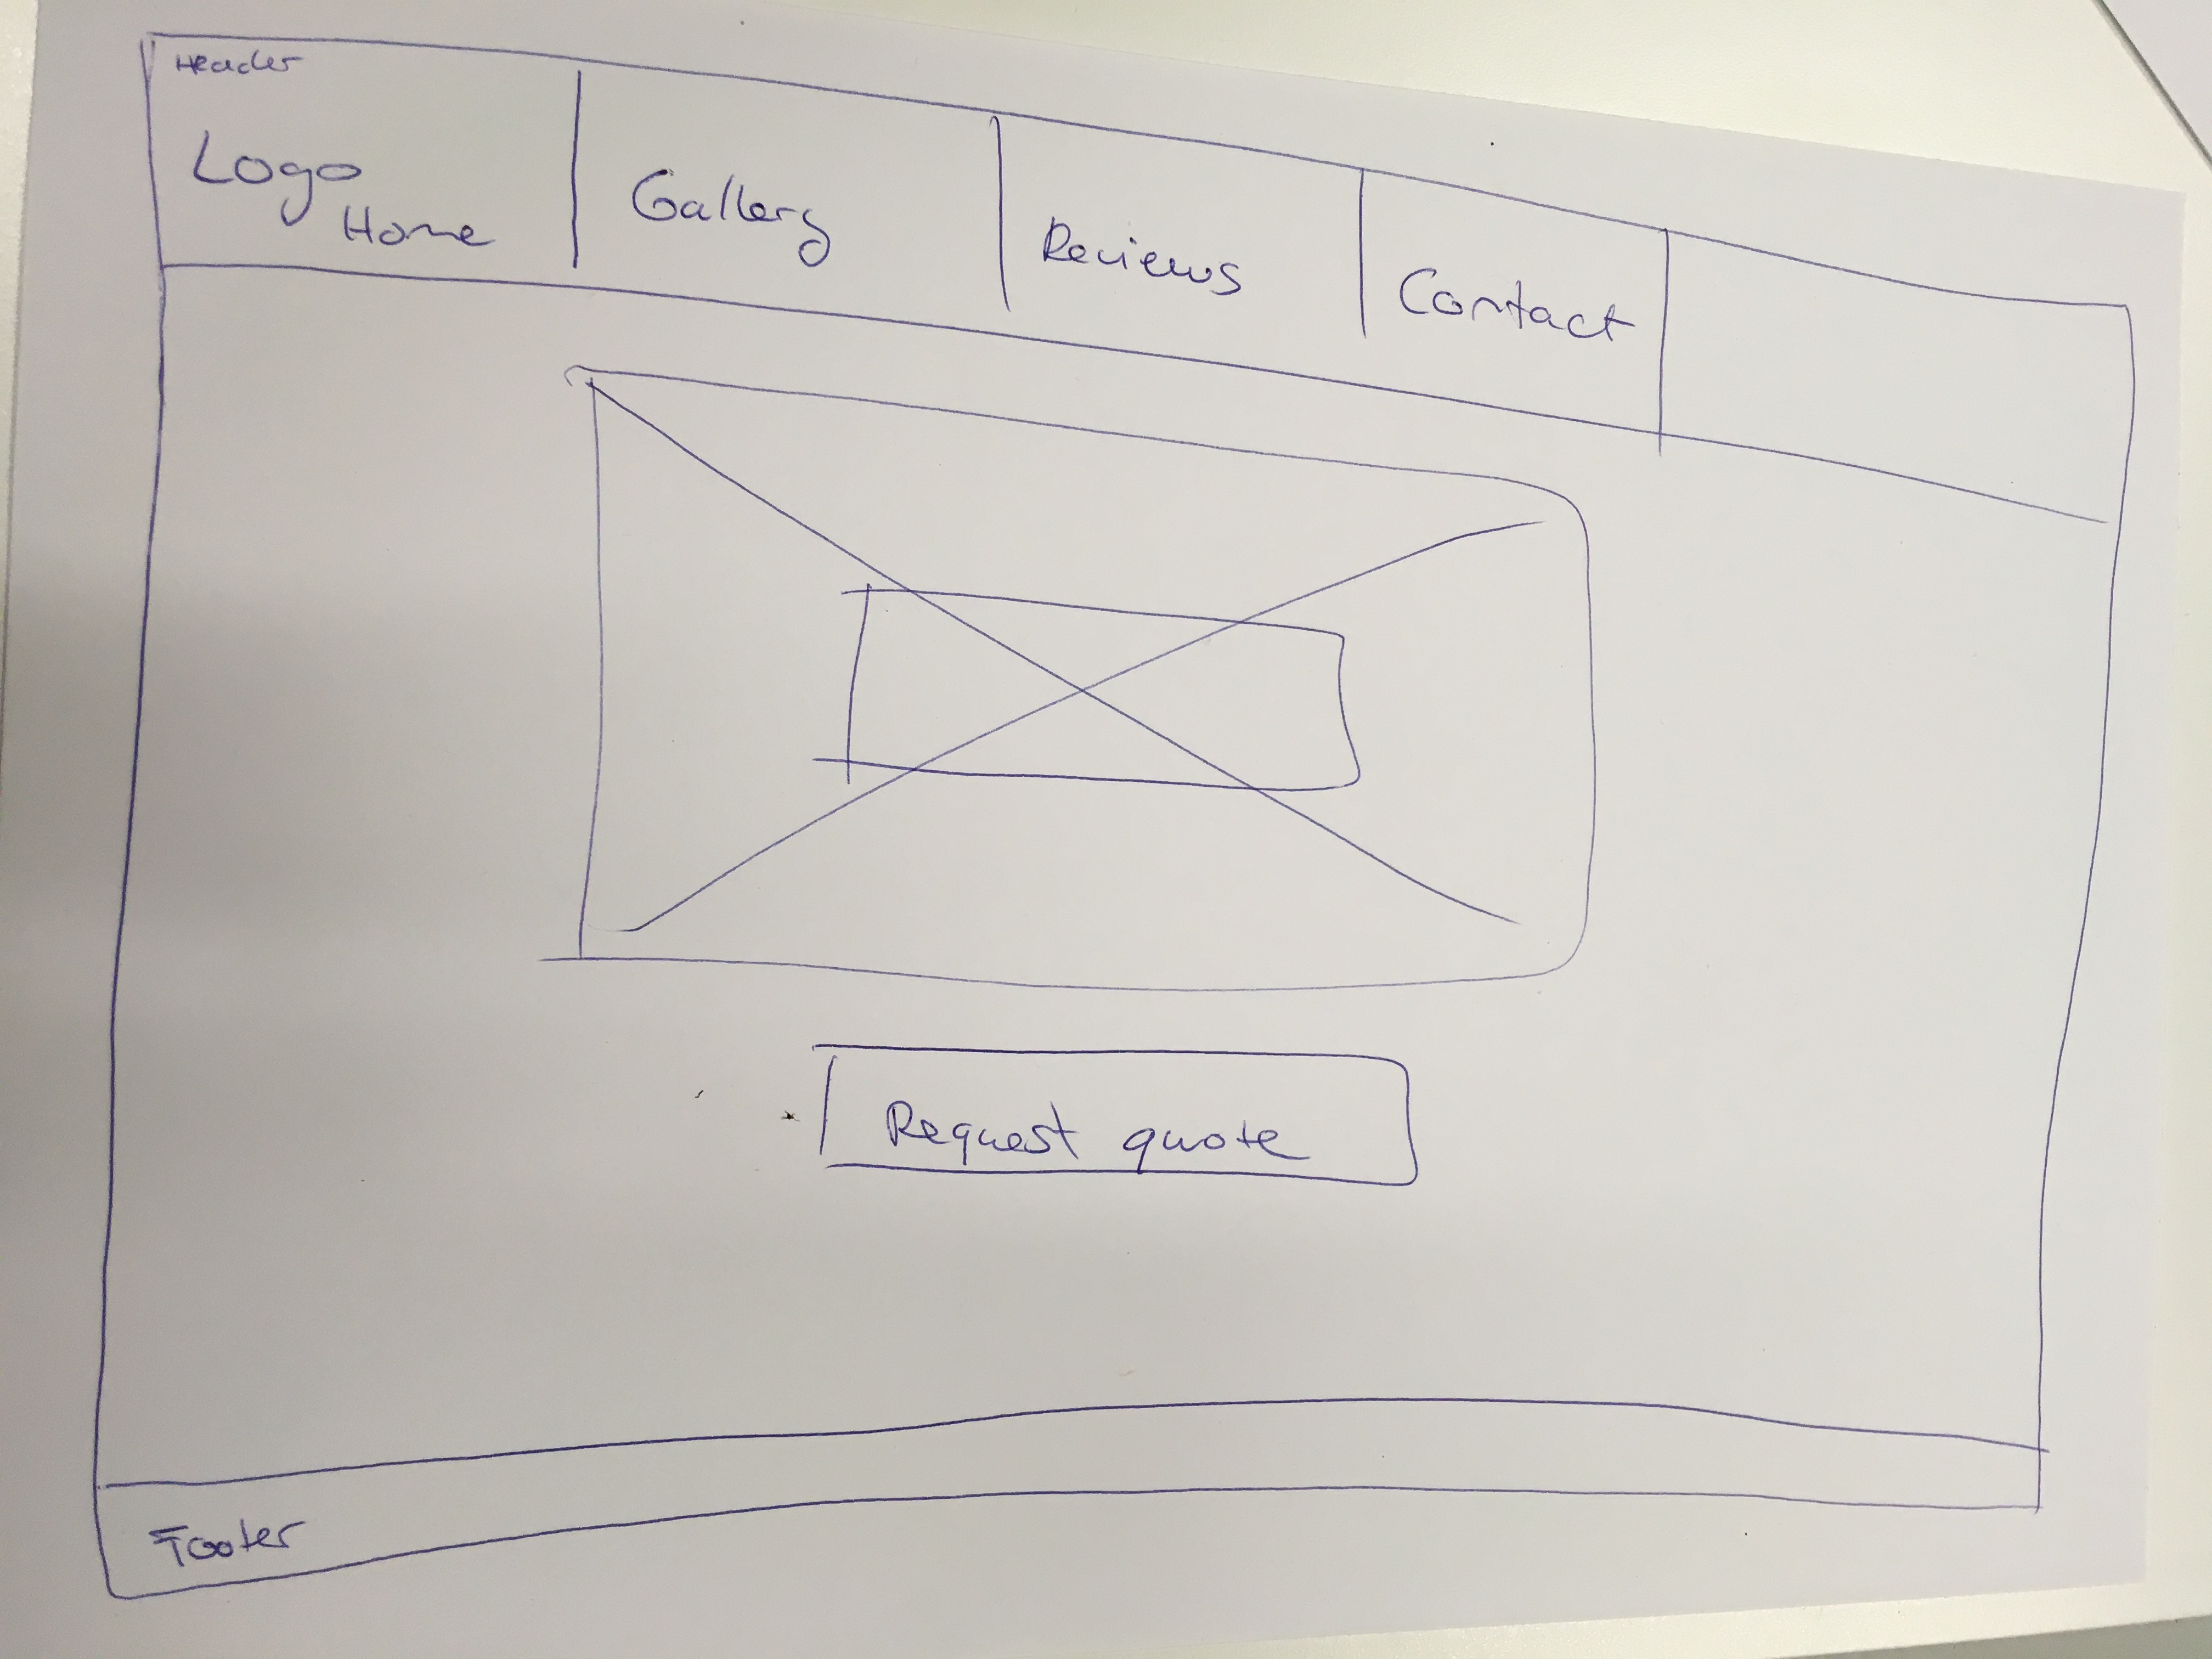 Header
Logo
Home
Gallery
Reviews
Contact
Request quote
Footer